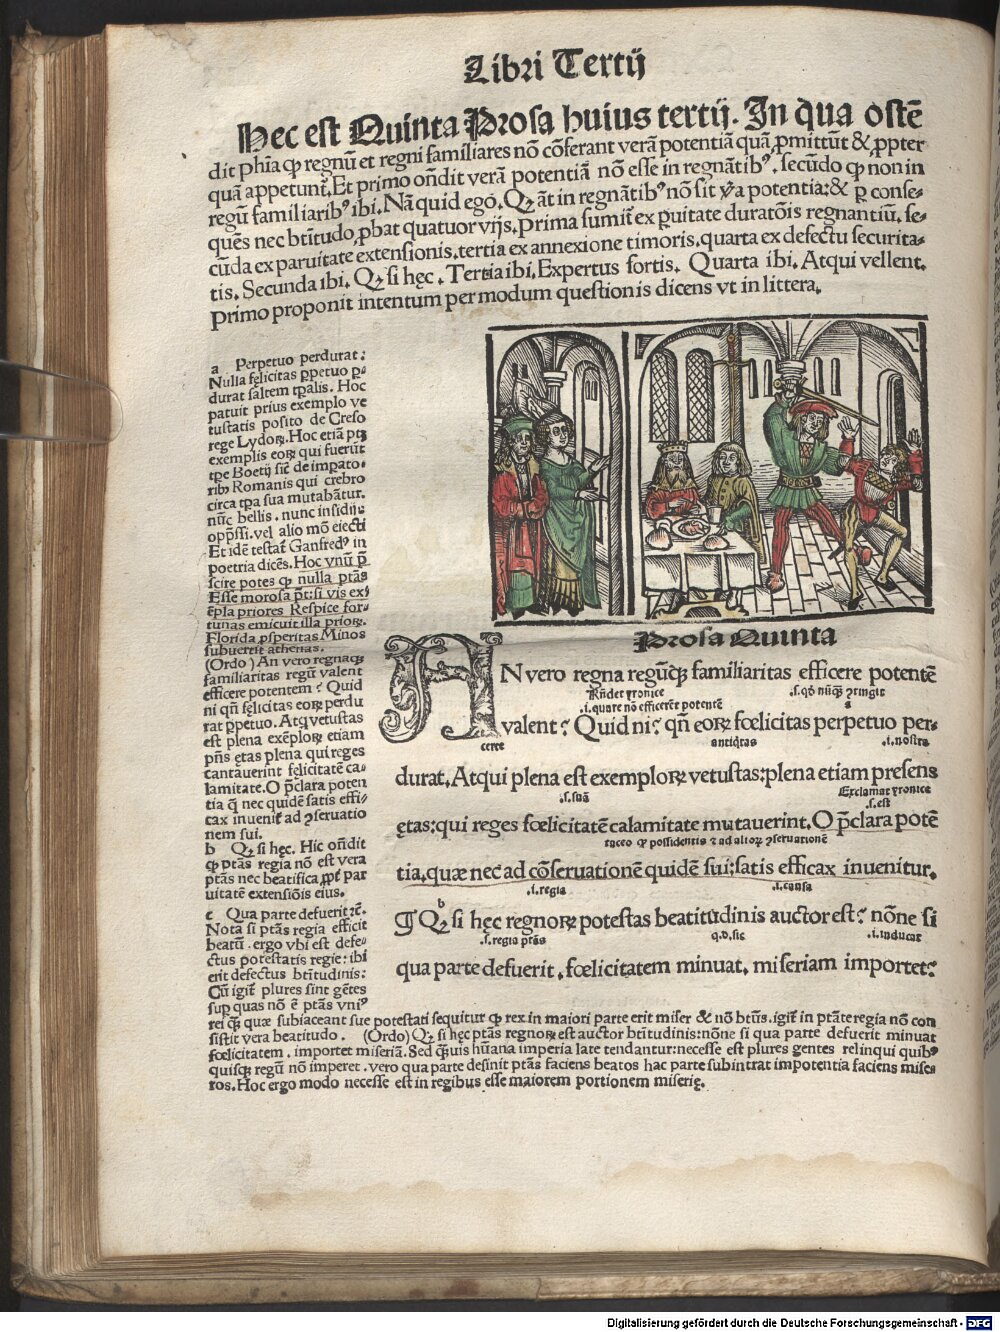 Libri Tertij
Hec est Quinta Prosa huius tertij. In qua ostē
dit phīa qꝫ regnū et regni familiares nō cōferant verā potentiā quā ꝓmittūt & ꝓpter
quā appetunt̄. Et primo oñdit verā potentiā nō esse in regnātibꝰ. secūdo qꝫ non in
regū familiaribꝰ ibi. Nā quid ego. Qꝫ āt in regnātibꝰ nō sit v̄a potentia: & ꝑ conse-
quēs nec btītudo, ꝓbat quatuor vijs. Prima sumit̄ ex ꝑuitate duratōis regnantiū. se-
cūda ex paruitate extensionis. tertia ex annexione timoris. quarta ex defectu securita-
tis. Secunda ibi. Qꝫ si hęc. Tertia ibi. Expertus fortis. Quarta ibi. Atqui vellent.
Primo proponit intentum per modum questionis dicens vt in littera.
a Perpetuo perdurat:
Nulla fęlicitas ꝑpetuo ꝑ-
durat saltem tꝑalis. Hoc
patuit prius exemplo ve
tustatis posito de Creso
rege Lydoꝝ. Hoc etiā ptꝫ
exemplis eoꝝ qui fuerūt
tꝑe Boetij sic̄ de imꝑato-
ribꝰ Romanis qui crebro
circa tꝑa sua mutabātur.
nūc bellis. nunc insidijs
opp̄ssi. vel alio mō eiecti
Et idē testat̄ Ganfredꝰ in
poetria dicēs. Hoc vnū p̄
scire potes qꝫ nulla ptās
Esse morosa p̄t: si vis ex-
ēpla priores Respice for-
tunas emicuit illa prioꝝ.
Florida ꝓsperitas Minos
subuertit athenas.
(Ordo) An vero regnaqꝫ
familiaritas regū valent
efficere potentem? Quid
ni qñ fęlicitas eoꝝ perdu
rat ꝑpetuo. Atqꝫ vetustas
est plena exēploꝝ etiam
pn̄s ętas plena qui reges
cantauerint fęlicitatē ca-
lamitate. O p̄clara poten
tia q̄ nec quidē satis effi-
cax inuenit̄ ad ꝯseruatio
nem sui.
b Qꝫ si hęc. Hic oñdit
qꝫ ptās regia nō est vera
ptās nec beatifica ꝓpt̄ par
uitatē extensiōis eius.
c Qua parte defuerit ⁊c̄.
Nota si ptās regia efficit
beatū. ergo vbi est defe-
ctus potestatis regie: ibi
erit defectus btītudinis:
Cū igit̄ plures sint gētes
sup quas nō ē ptās vniꝰ
rei qꝫ quæ subiaceant sue potestati sequitur qꝫ rex in maiori parte erit miser & nō btūs. igit̄ in ptāte regia nō con
sistit vera beatitudo. (Ordo) Qꝫ si hęc ptās regnoꝝ est auctor btītudinis: nōne si qua parte defuerit minuat
fœlicitatem. importet miseriā. Sed qꝫuis hūana imperia late tendantur: necesse est plures gentes relinqui quibꝰ
quisqꝫ regū nō imperet. vero qua parte desinit ptās faciens beatos hac parte subintrat impotentia faciens mise-
ros. Hoc ergo modo necesse est in regibus esse maiorem portionem miserię.
Prosa Quinta
AN vero regna regūqꝫ familiaritas efficere potentē
Rn̄det yronice
.i. quare nō efficerēt potentē
valent? Quid ni? qñ eoꝝ fœlicitas perpetuo per-
certe antiq̄tas .i. nostra
durat. Atqui plena est exemploꝝ vetustas: plena etiam presens
.s. suā Exclamat yronice
.s. est
ętas: qui reges fœlicitatē calamitate mutauerint. O p̄clara potē
taceo qꝫ possidentis ⁊ ad alioꝝ ꝯseruationē
tia, quæ nec ad cōseruationē quidē sui: satis efficax inuenitur.
.i. regia .i. causa
¶ Qꝫ b si hęc regnoꝝ potestas beatitudinis auctor est? nōne si
.s. regia ptās q.d. sic .i. inducat
qua parte defuerit, fœlicitatem minuat, miseriam importet?
Digitalisierung gefördert durch die Deutsche Forschungsgemeinschaft - DFG